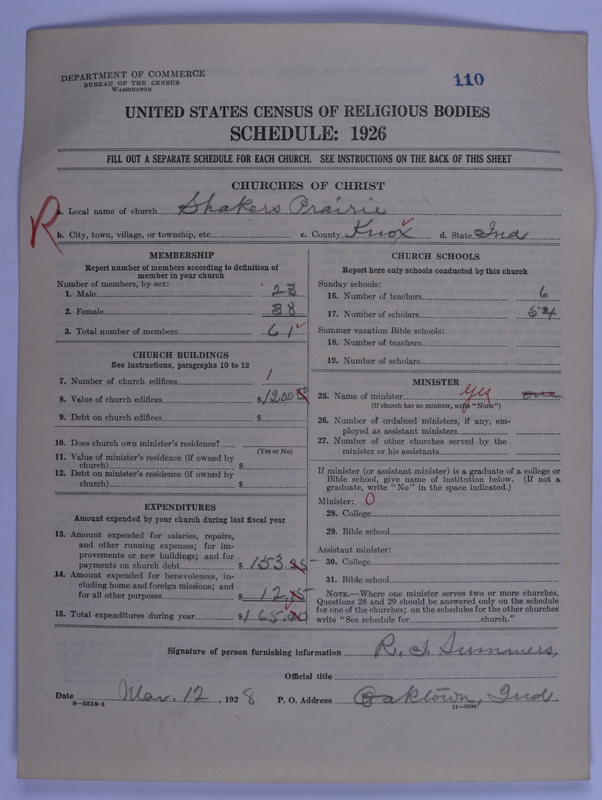 DEPARTMENT OF COMMERCE
BUREAU OF THE CENSUS
WASHINGTON
110
UNITED STATES CENSUS OF RELIGIOUS BODIES
SCHEDULE: 1926
FILL OUT A SEPARATE SCHEDULE FOR EACH CHURCH. SEE INSTRUCTIONS ON THE BACK OF THIS SHEET
CHURCHES OF CHRIST
R
a. Local name of church Shakers Prairie
b. City, town, village, or township, etc. c. County Knox d. State Ind
MEMBERSHIP
Report number of members according to definition of
member in your church
Number of members, by sex:
1. Male 23
2. Female 38
3. Total number of members 61
CHURCH BUILDINGS
See instructions, paragraphs 10 to 12
7. Number of church edifices 1
8. Value of church edifices $1200
9. Debt on church edifices $
10. Does church own minister's residence?
(Yes or No)
11. Value of minister's residence (if owned by
church) $
12. Debt on minister's residence (if owned by
church) $
EXPENDITURES
Amount expended by your church during last fiscal year
13. Amount expended for salaries, repairs,
and other running expenses; for im-
provements or new buildings; and for
payments on church debt $153.85
14. Amount expended for benevolences, in-
cluding home and foreign missions; and
for all other purposes $12.15
15. Total expenditures during year $165.00
CHURCH SCHOOLS
Report here only schools conducted by this church
Sunday schools:
16. Number of teachers 6
17. Number of scholars 54
Summer vacation Bible schools:
18. Number of teachers
19. Number of scholars
MINISTER
25. Name of minister yes
(If church has no minister, write "None")
26. Number of ordained ministers, if any, em-
ployed as assistant ministers
27. Number of other churches served by the
minister or his assistants
If minister (or assistant minister) is a graduate of a college or
Bible school, give name of institution below. (If not a
graduate, write "No" in the space indicated.)
Minister: 0
28. College
29. Bible school
Assistant minister:
30. College
31. Bible school
NOTE.—Where one minister serves two or more churches,
Questions 28 and 29 should be answered only on the schedule
for one of the churches; on the schedules for the other churches
write "See schedule for church."
Signature of person furnishing information R. I. Summers,
Official title
Date Mar. 12, 1928 P. O. Address Oaktown, Ind
8—5518-1